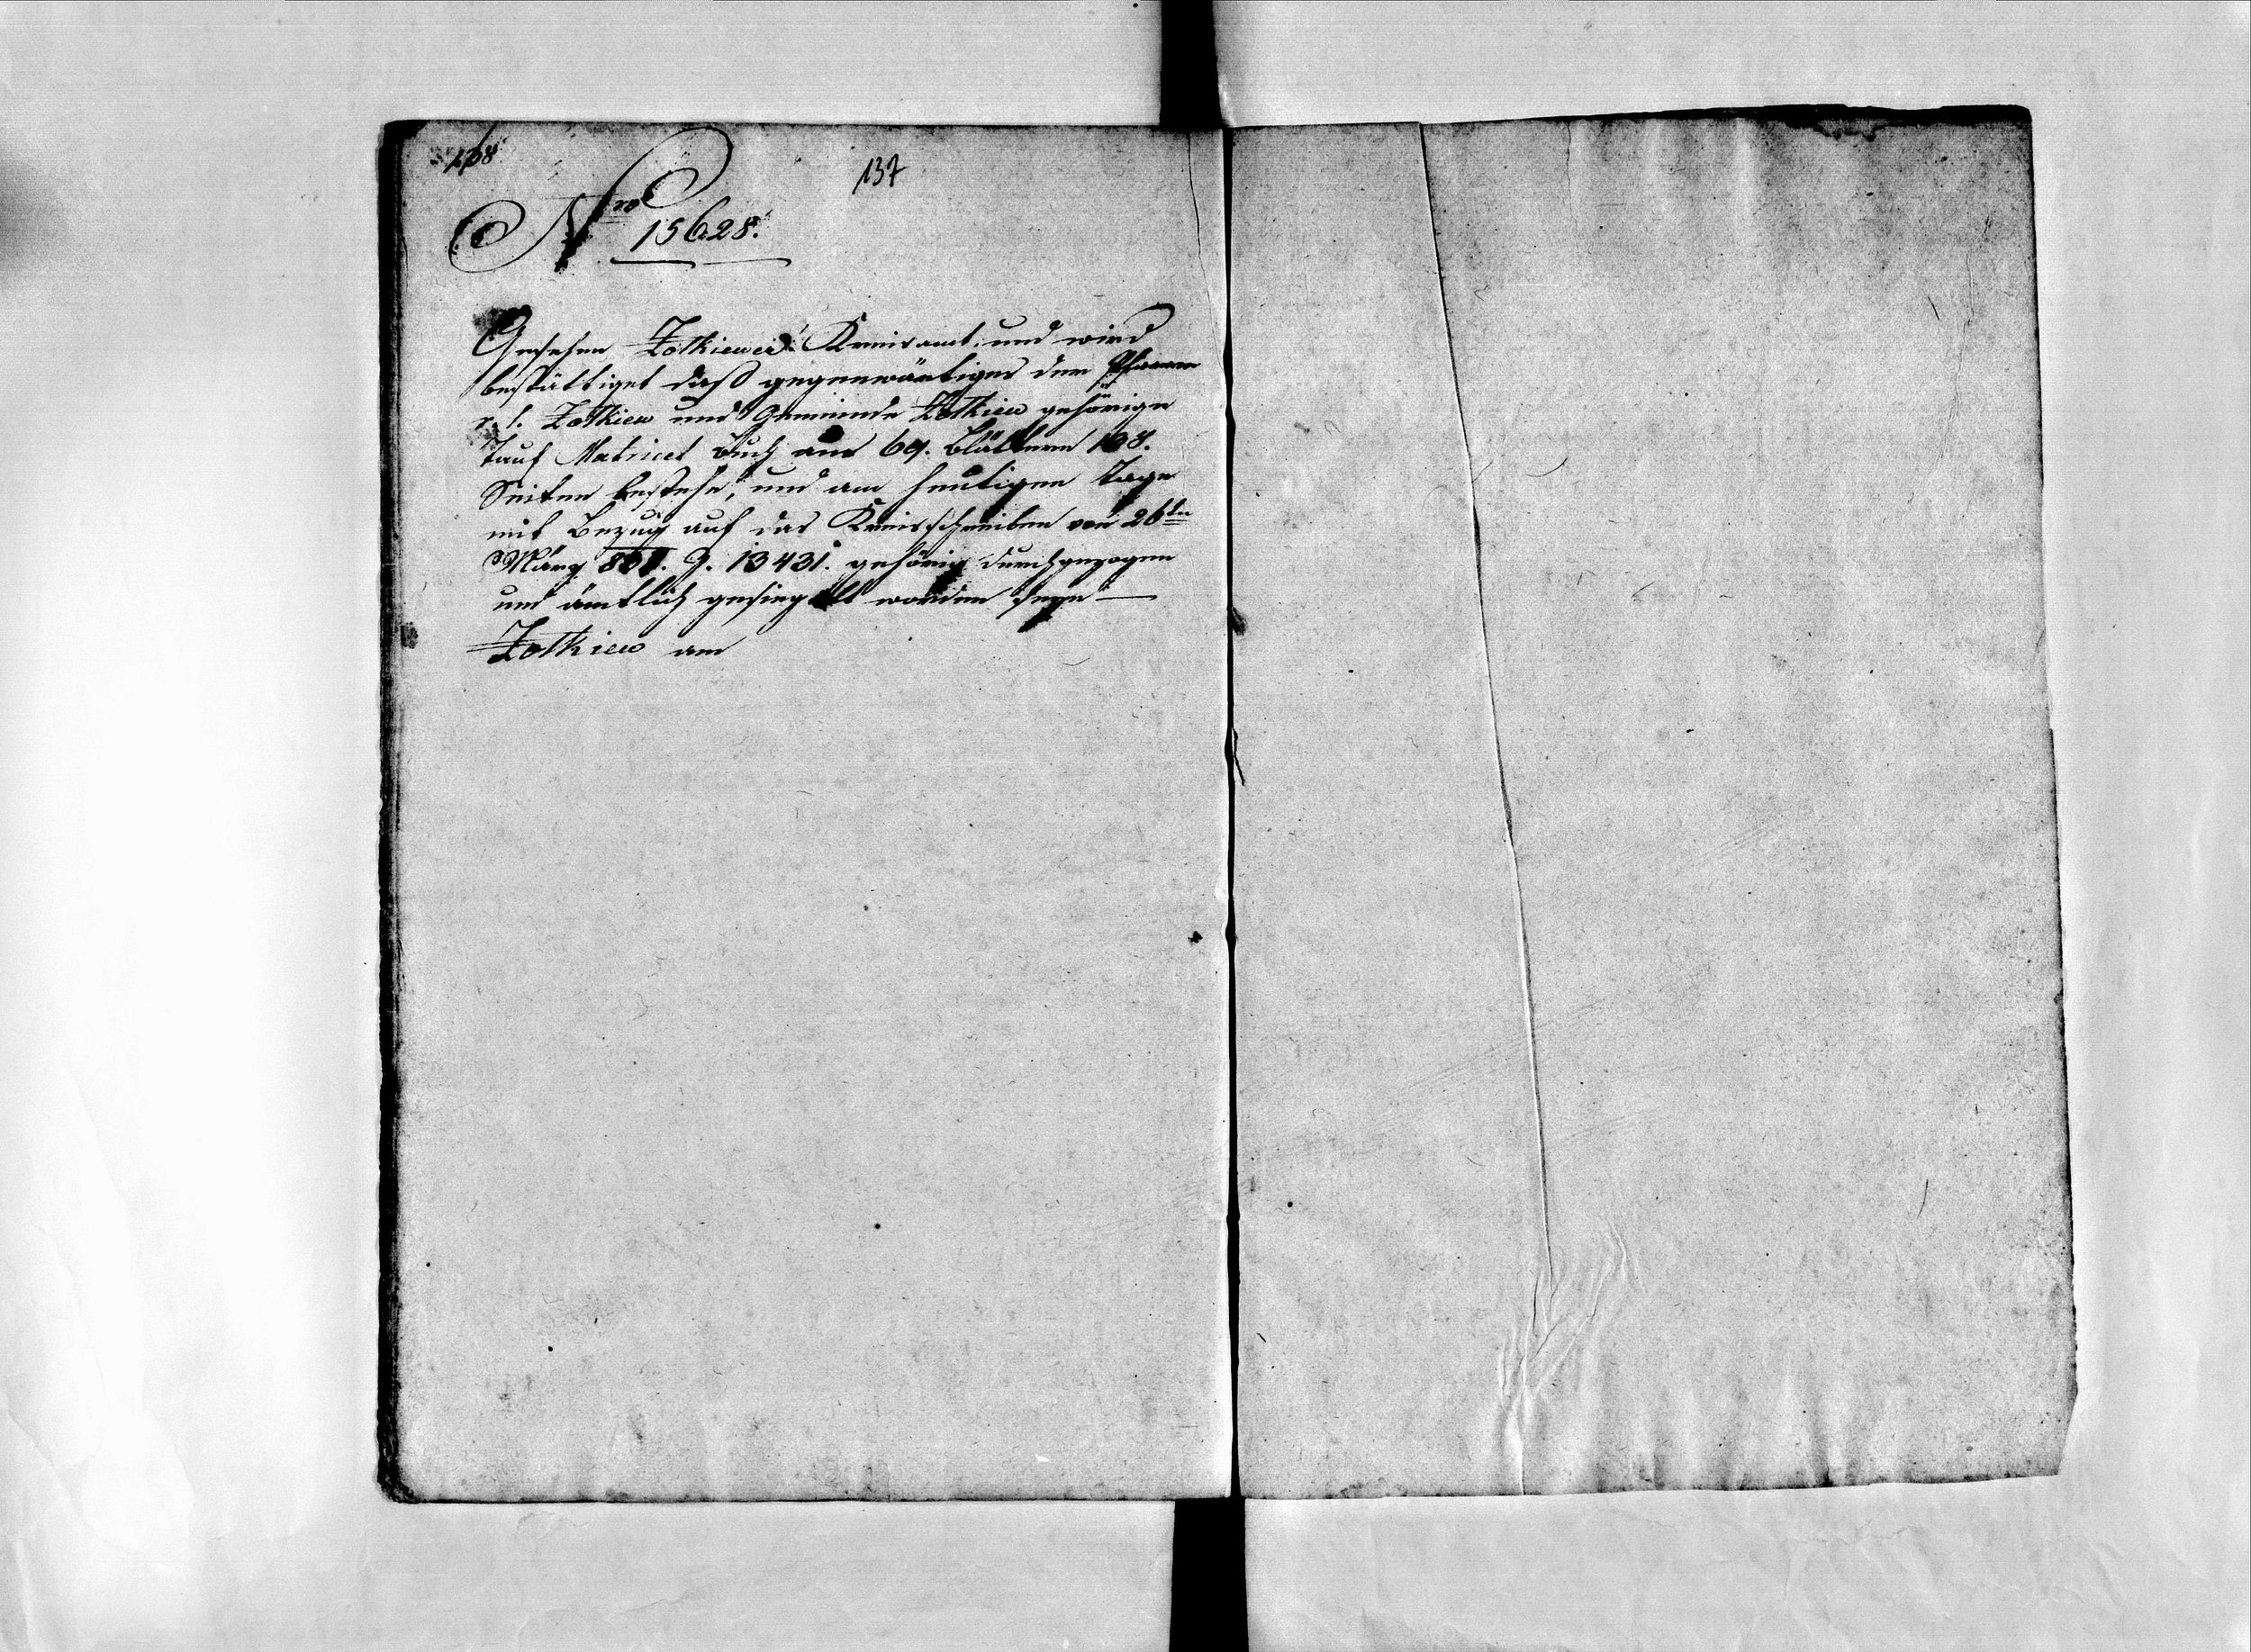 138
137
Nro 15628.
Gesehen Zołkiewer Kreisamt und wird
bestättiget daß gegenwärtiges der Pfarre
r. l. Zołkiew und Gemeinde Zołkiew gehörige
Tauf Matricel Buch aus 69. Blättern 138.
Seiten bestehe, und am heutigen Tage
mit Bezug auf das Kreisschreiben von 26ten
März Z. 13431. gehörig durchgezogen
und ämtlich gesiegelt worden seye —
Zołkiew am